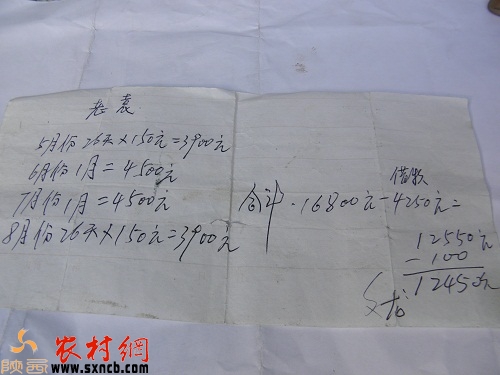 老袁
5月份26天×150元=3900元
6月份1月=4500元
7月份1月=4500元
8月份26天×150元=3900元
借款
合计.16800元-4250元=
12550元
-100
12450元
陕西农村網
www.sxncb.com